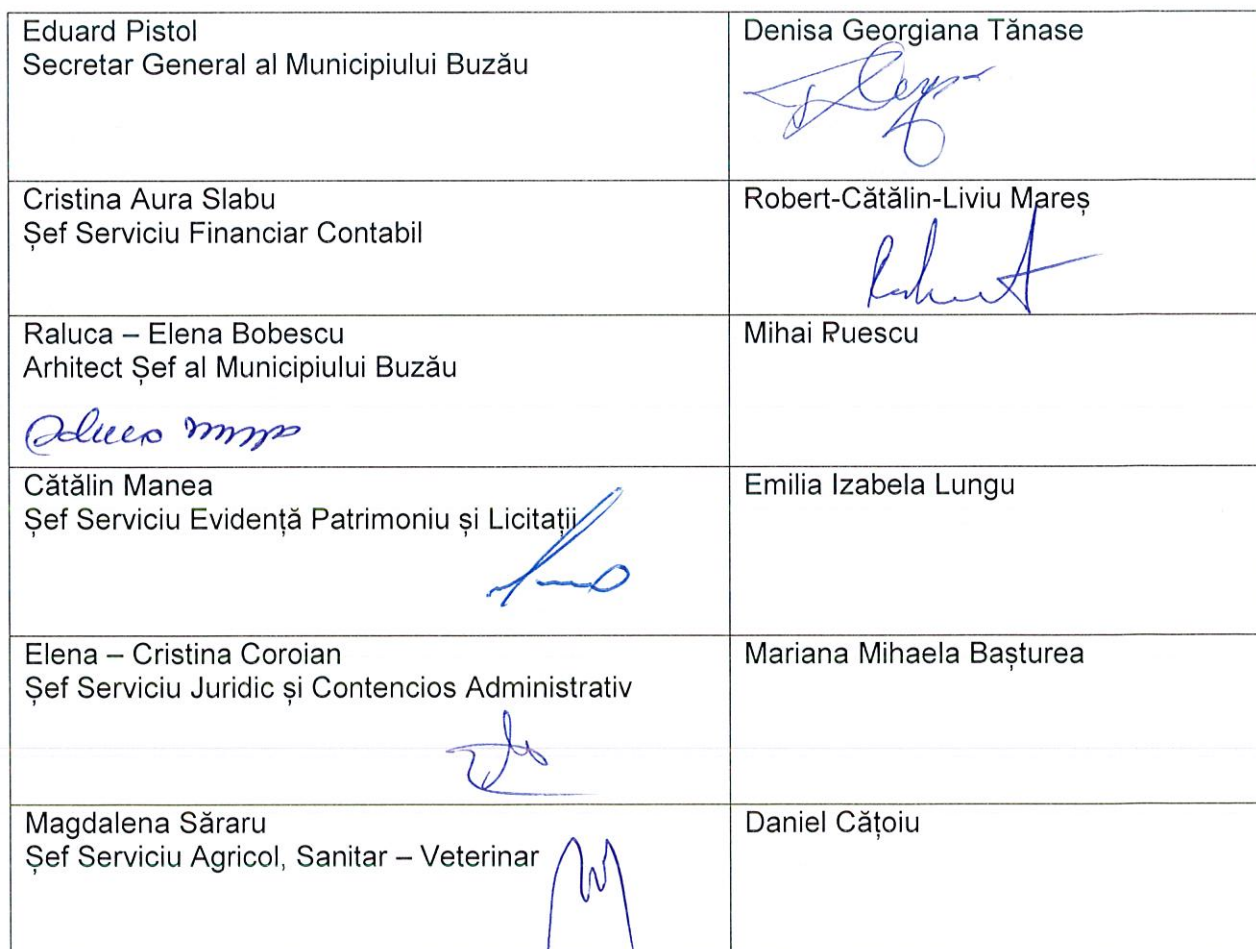 Eduard Pistol
Secretar General al Municipiului Buzău
Denisa Georgiana Tănase
Cristina Aura Slabu
Șef Serviciu Financiar Contabil
Robert-Cătălin-Liviu Mareș
Raluca – Elena Bobescu
Arhitect Șef al Municipiului Buzău
Mihai Ruescu
Cătălin Manea
Șef Serviciu Evidență Patrimoniu și Licitații
Emilia Izabela Lungu
Elena – Cristina Coroian
Șef Serviciu Juridic și Contencios Administrativ
Mariana Mihaela Bașturea
Magdalena Săraru
Șef Serviciu Agricol, Sanitar – Veterinar
Daniel Cățoiu